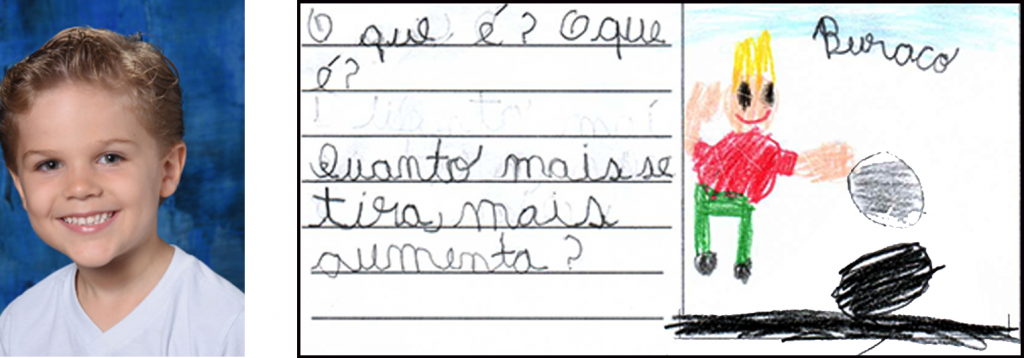 O que é? O que
é?
Quanto mais se
tira, mais
aumenta?
Buraco